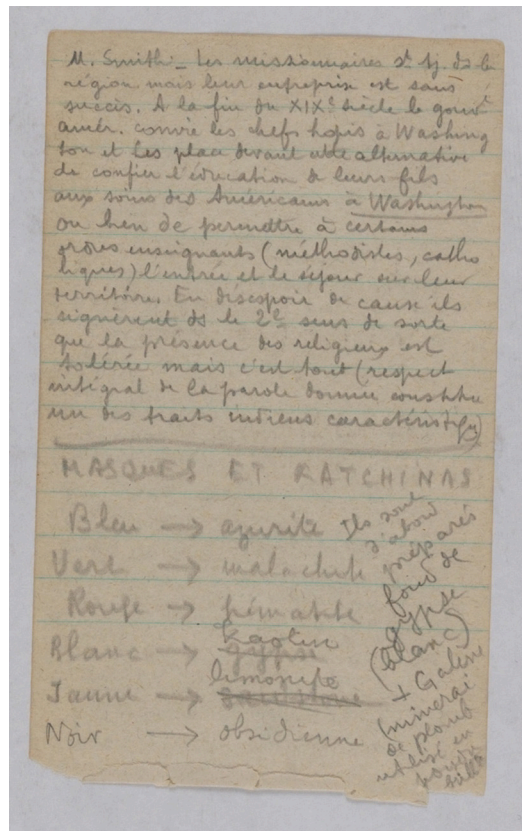 M. Smith:_ Les missionnaires st tj. ds la
région mais leur entreprise est sans
succès. A la fin du XIXe siècle le gouvt
amér. convie les chefs hopis à Washing
ton et les place devant cette alternative
de confier l'éducation de leurs fils
aux soins des Américains à Washington
ou bien de permettre à certains
ordres enseignants (méthodistes, catho
liques) l'entrée et le séjour sur leur
territoire. En désespoir de cause ils
signèrent ds le 2e sens de sorte
que la présence des religieux est
tolérée mais c'est tout (respect
intégral de la parole donnée constitue
un des traits indiens caractéristiq)
MASQUES ET KATCHINAS
Bleu → azurite
Vert → malachite
Rouge → hématite
kaolin
Blanc → gypse
limonite
Jaune →
Noir → obsidienne
Ils sont
d'abord
préparés
fond de
gypse
(blanc)
+ Galène
(minerai
de plomb
utilisé en